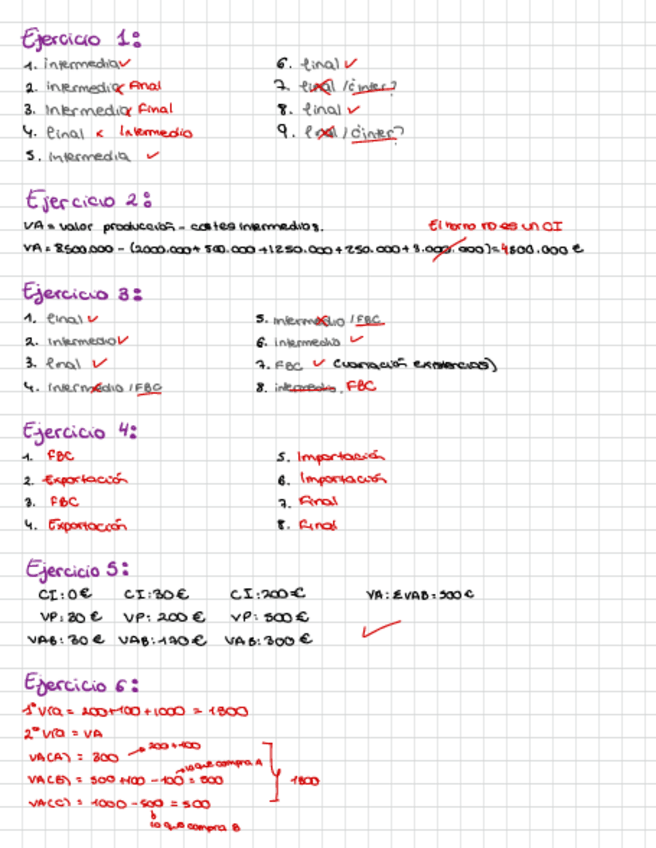 Ejercicio 1:
1. intermedia ✓
2. intermedia Final
3. Intermedia Final
4. Final x Intermedio
5. Intermedia ✓
6. final ✓
7. final / ¿inter?
8. final ✓
9. final / ¿inter?
Ejercicio 2:
VA = valor producción - costes intermedios.
El horno no es un CI
VA = 8500.000 - (2000.000 + 500.000 + 1250.000 + 250.000 + 3.000.000) = 4500.000 €
Ejercicio 3:
1. final ✓
2. Intermedio ✓
3. final ✓
4. Intermedio / FBC
5. intermedio / FBC
6. intermedio ✓
7. FBC ✓ (variación existencias)
8. intermedio. FBC
Ejercicio 4:
1. FBC
2. Exportación
3. FBC
4. Exportación
5. Importación
6. Importación
7. Final
8. Final
Ejercicio 5:
CI: 0€ CI: 30€ CI: 200€ VA: ΣVAB = 500€
VP: 30€ VP: 200€ VP: 500€
VAB: 30€ VAB: 170€ VAB: 300€
Ejercicio 6:
1º V(a = 200+100+1000 = 1300
2º V(a = VA
VA(A) = 300 → 200+100
VA(B) = 500 +100 -100 = 500 → lo que compra A
VA(C) = 1000 - 500 = 500
1300
lo que compra B